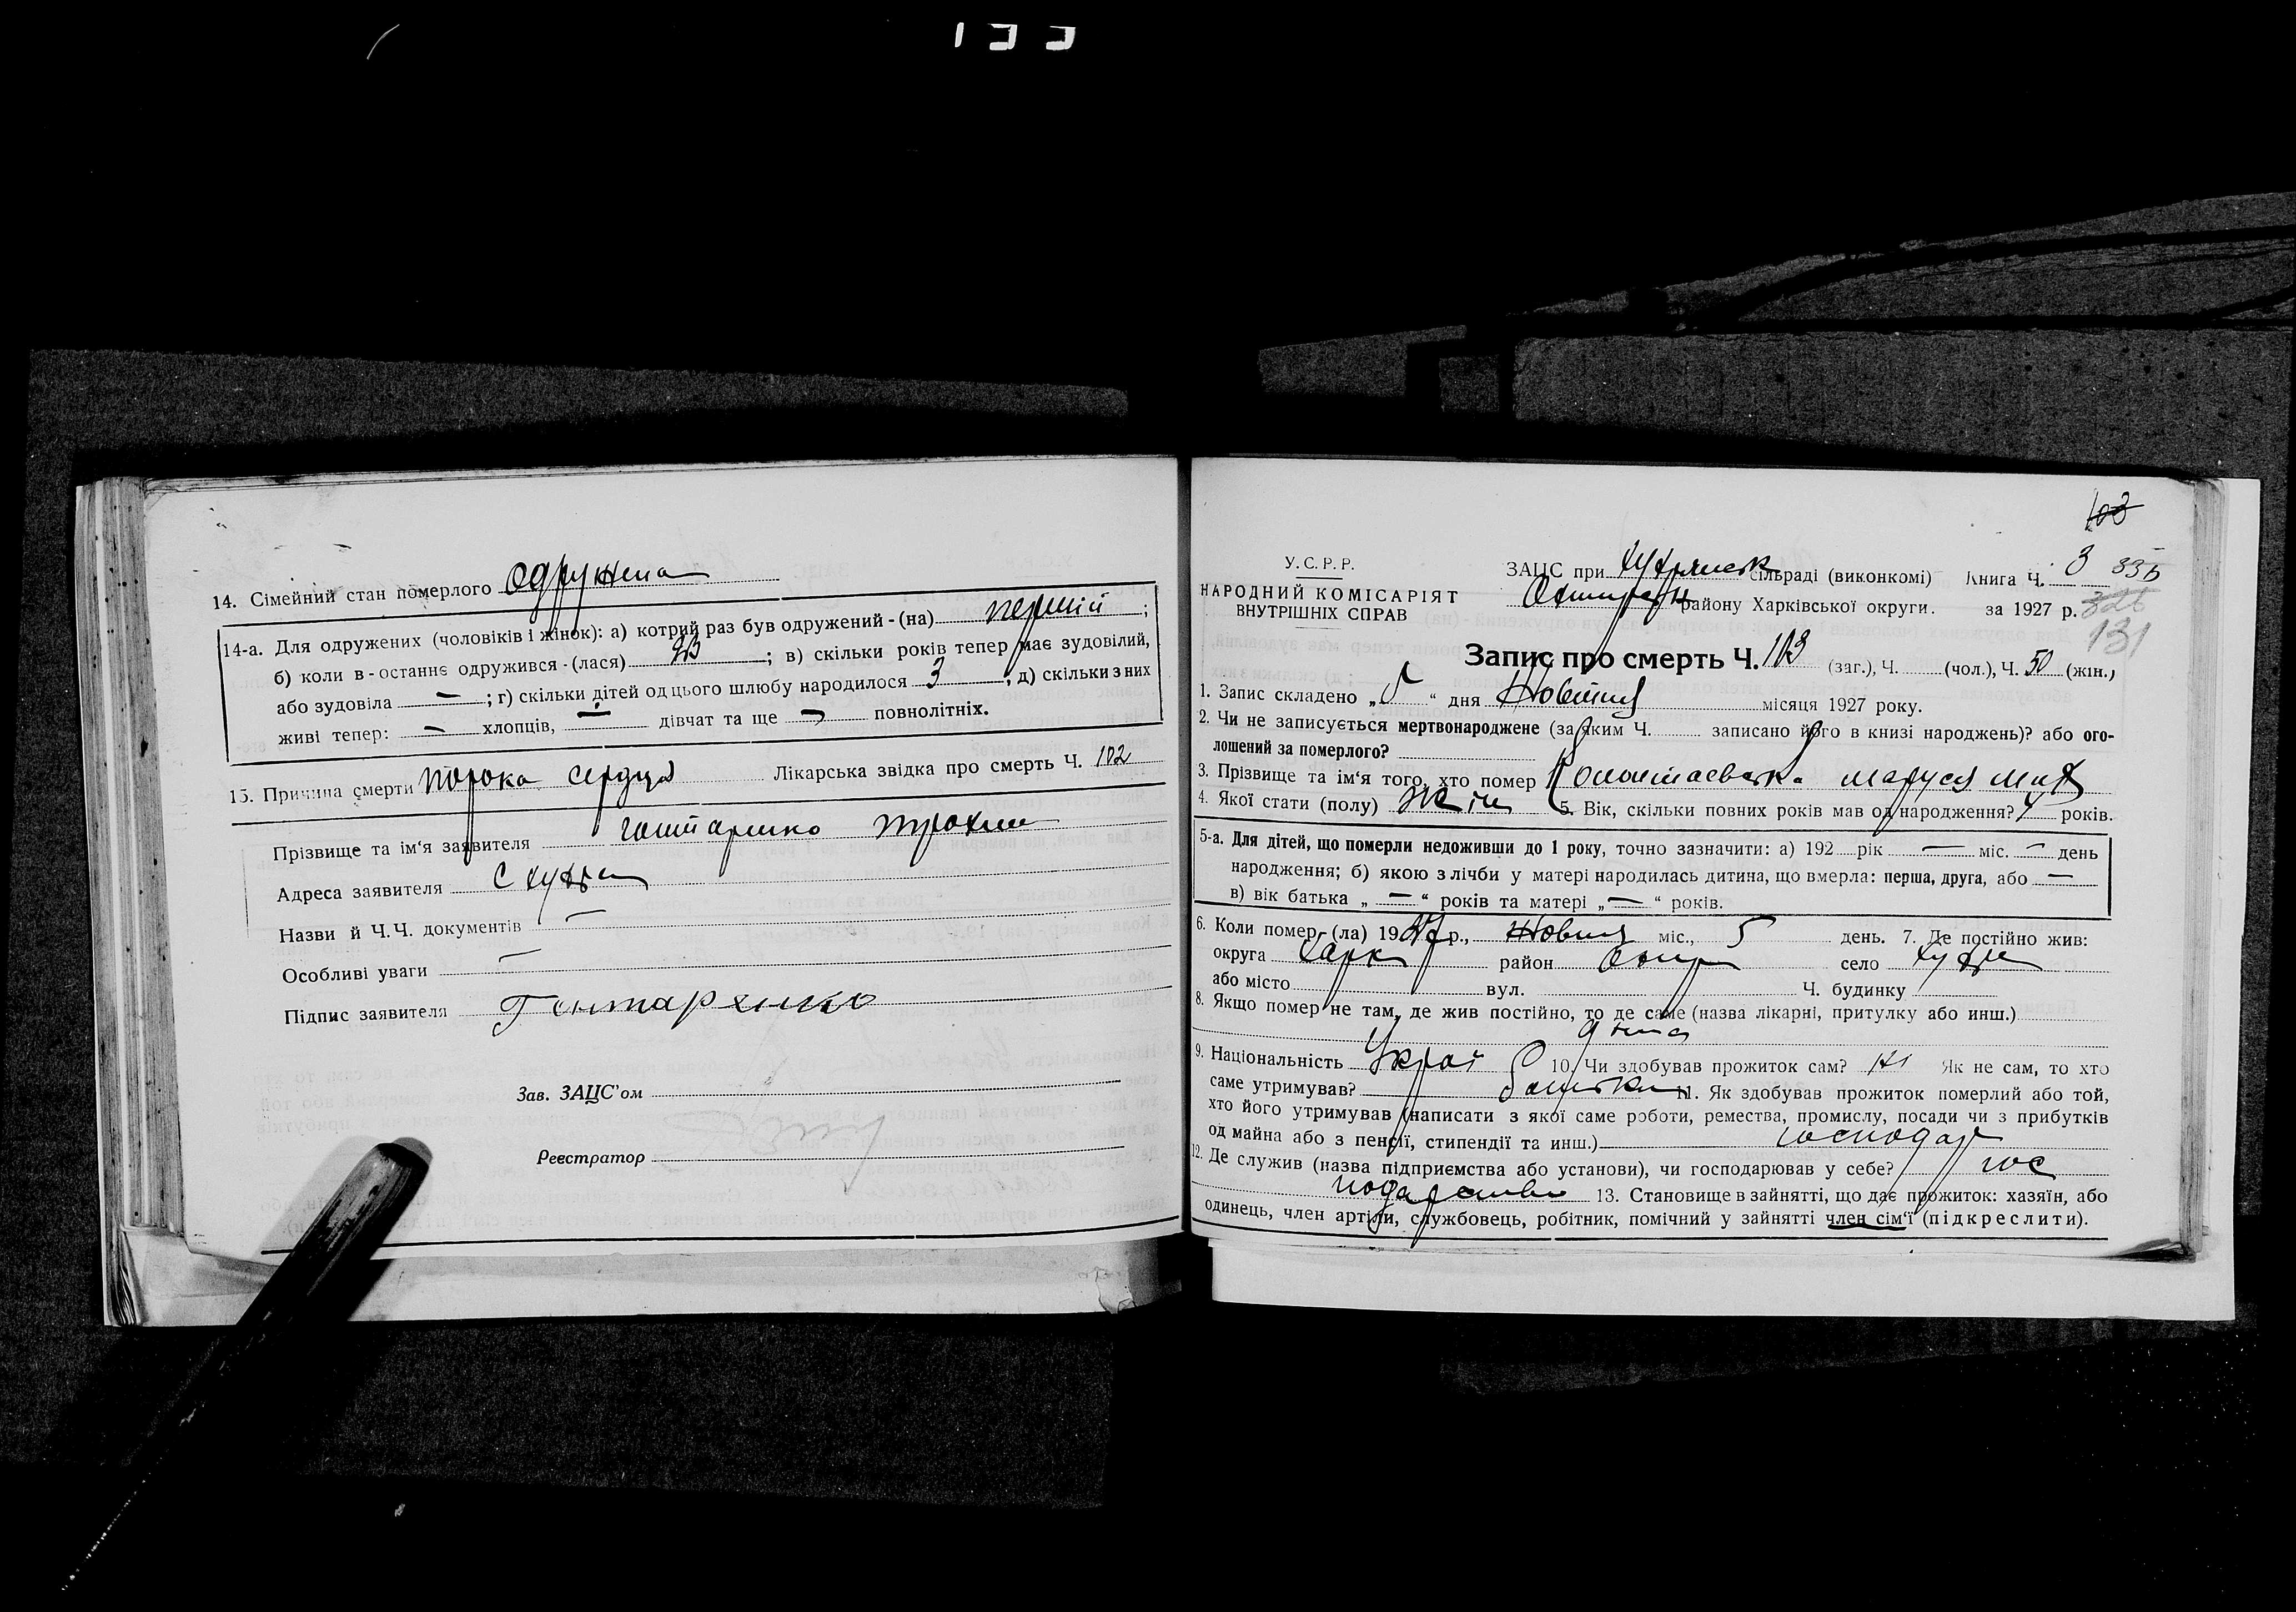 133
14. Сімейний стан померлого одружена
14-а. Для одружених (чоловіків і жінок): а) котрий раз був одружений - (на) перший ;
б) коли в-останнє одружився - (лася) ; в) скільки років тепер має зудовілий,
або зудовіла — ; г) скільки дітей од цього шлюбу народилося 3 ; д) скільки з них
живі тепер: — хлопців, — дівчат та ще — повнолітніх.
15. Причина смерти порока сердця Лікарська звідка про смерть Ч. 102
Прізвище та ім'я заявителя
Адреса заявителя с
Назви й Ч.Ч. документів —
Особливі уваги —
Підпис заявителя
Зав. ЗАЦС'ом
Реєстратор
103
У.С.Р.Р.
НАРОДНИЙ КОМІСАРІЯТ
ВНУТРІШНІХ СПРАВ
ЗАЦС при сільраді (виконкомі) Книга Ч. 3 335
району Харківської округи. за 1927 р. 326
131
Запис про смерть Ч. 103 (заг.), Ч. (чол.), Ч. 50 (жін.)
1. Запис складено „ 5 “ дня Жовтня місяця 1927 року.
2. Чи не записується мертвонароджене (за яким Ч. записано його в книзі народжень)? або ого-
лошений за померлого?
3. Прізвище та ім'я того, хто помер Маруся Мих
4. Якої стати (полу) жін 5. Вік, скільки повних років мав од народження? років.
5-а. Для дітей, що померли недоживши до 1 року, точно зазначити: а) 192 рік — міс. — день
народження; б) якою з лічби у матері народилась дитина, що вмерла: перша, друга, або —
в) вік батька „ — “ років та матері „ — “ років.
6. Коли помер-(ла) 1927 р., Жовтня міс., 5 день. 7. Де постійно жив:
округа Харк район село
або місто вул. Ч. будинку
8. Якщо помер не там, де жив постійно, то де саме (назва лікарні, притулку або инш.)
дома
9. Національність Украї 10. Чи здобував прожиток сам? ні Як не сам, то хто
саме утримував? 11. Як здобував прожиток померлий або той,
хто його утримував (написати з якої саме роботи, ремества, промислу, посади чи з прибутків
од майна або з пенсії, стипендії та инш.) господар
12. Де служив (назва підприємства або установи), чи господарював у себе? гос
подарстві 13. Становище в зайнятті, що дає прожиток: хазяїн, або
одинець, член артіли, службовець, робітник, помічний у зайнятті член сім'ї (підкреслити).